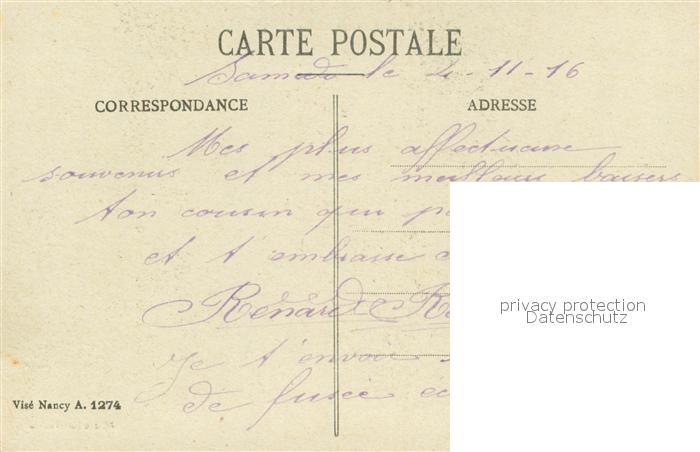 CARTE POSTALE
Samedi le 4-11-16
CORRESPONDANCE
ADRESSE
Mes plus affectueux
souvenirs et mes meilleurs baisers
ton cousin qui
et t'embrasse
Renard
Je t'envoie
de fusée
privacy protection
Datenschutz
Visé Nancy A. 1274